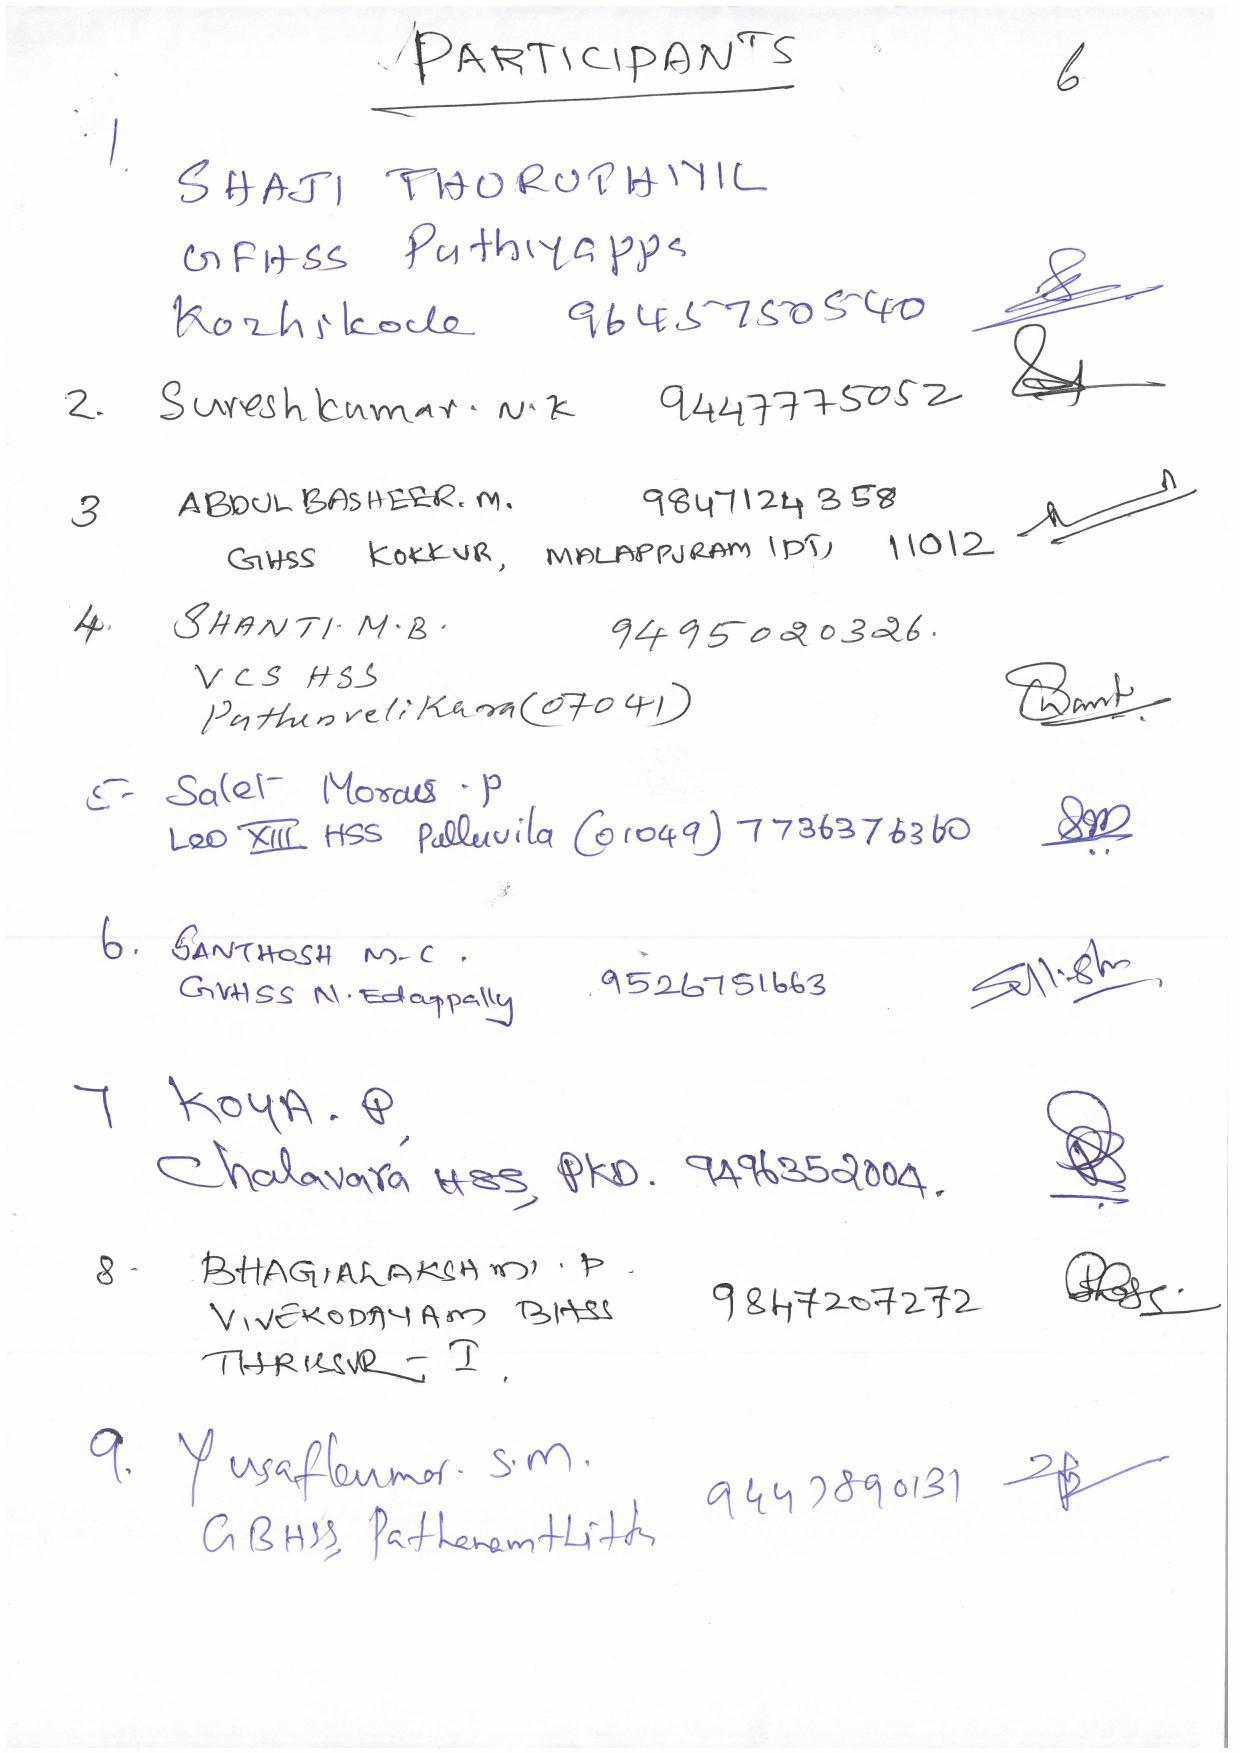 PARTICIPANTS
6
1.
SHAJI THORUPHIYIL
GFHSS Puthiyappa
Kozhikode 9645750540
2. Sureshkumar. N.K 9447775052
3 ABDUL BASHEER. M. 9847124358
GHSS KOKKUR, MALAPPURAM (DT) 11012
4. SHANTI. M.B. 9495020326.
VCS HSS
Puthenvelikara (07041)
5- Salet Morais . P
Leo XIII HSS Pulluvila (01049) 7736376360
6. SANTHOSH M-C.
GVHSS N. Edappally 9526751663
7 KOYA. P,
Chalavara HSS, PKD. 9496352004.
8- BHAGIALAKSHMI. P
VIVEKODAYAM BHSS 9847207272
THRISSUR - I.
9. Yusafkumar. S.M. 9447890131
GBHSS,